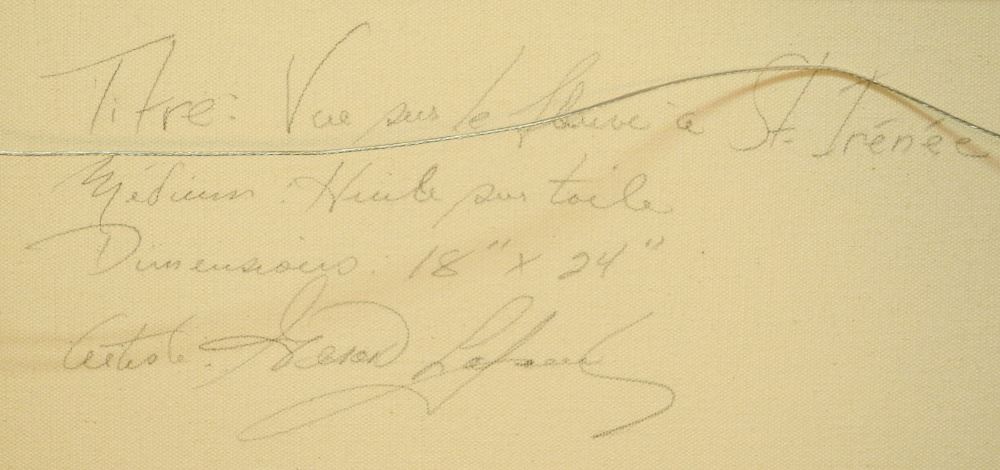 Titre: Vue sur le fleuve à St-Irénée
Médium: Huile sur toile
Dimensions: 18" x 24"
Artiste: